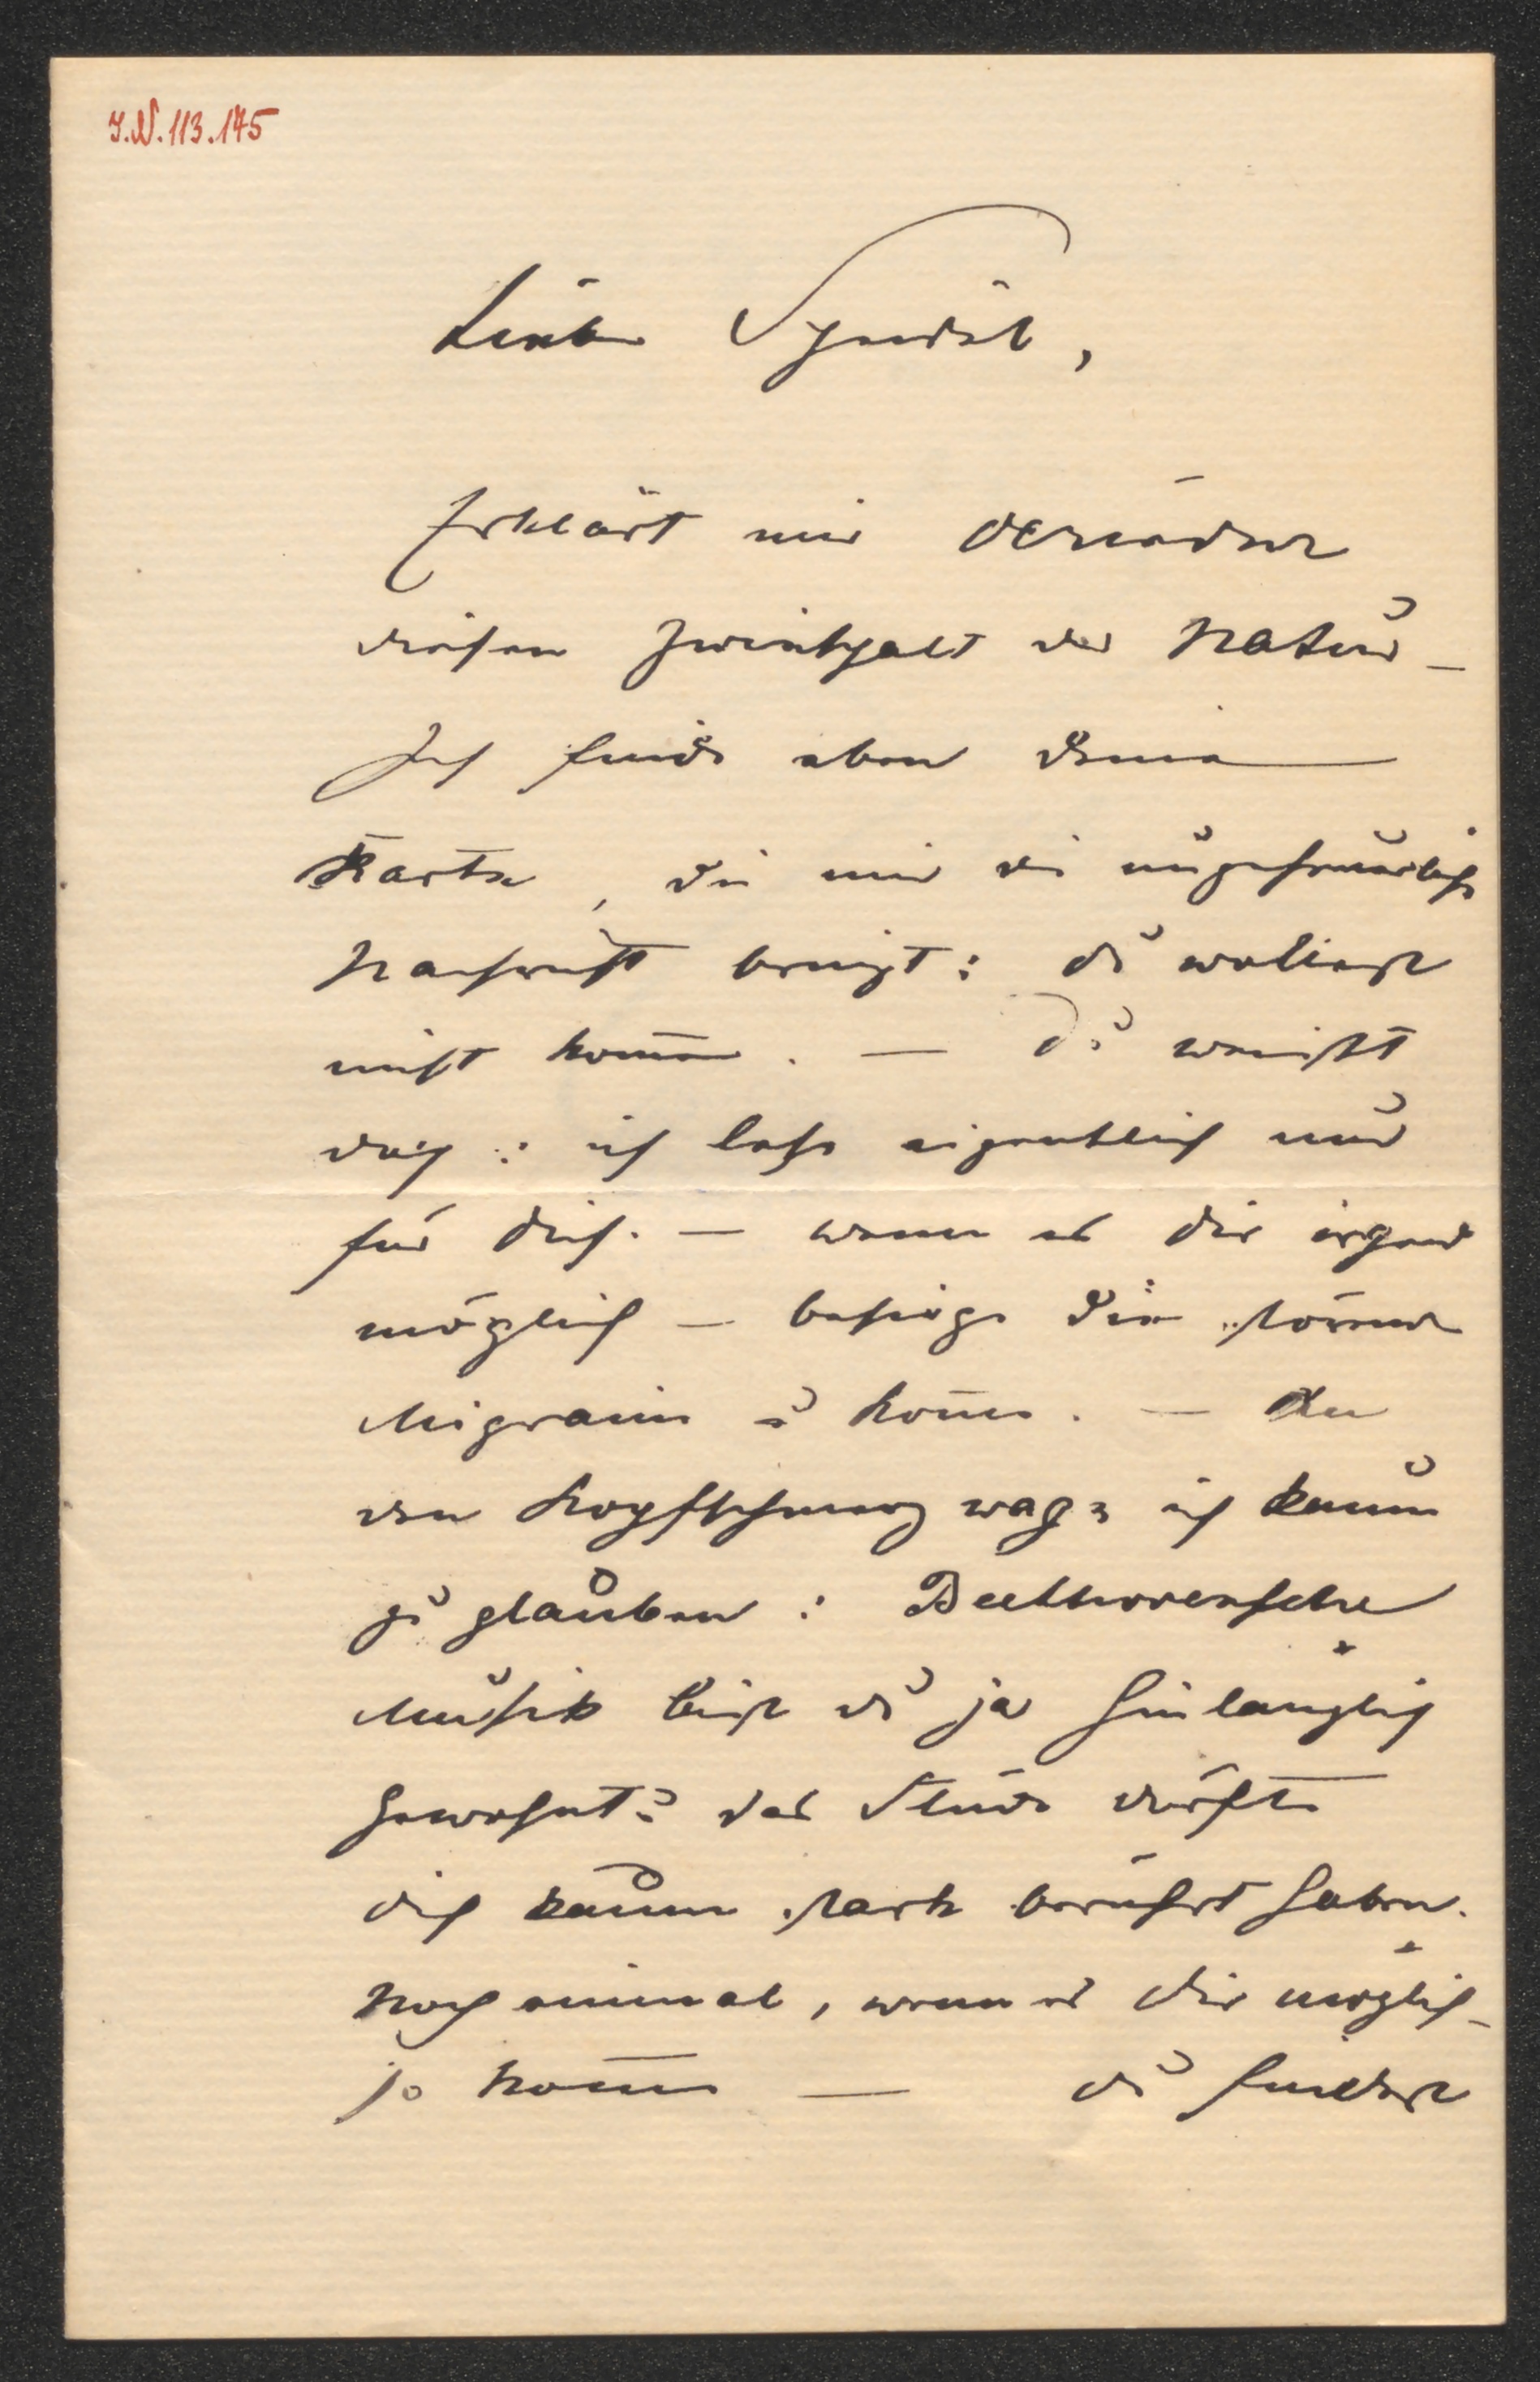 J.N. 113.145
Lieber Speidel,
Erklärt mir
diesen Zwiespalt der Natur –
Ich finde eben deine
Karte, die mir die ungeheuerliche
Nachricht bringt: du wolltest
nicht kommen. — Du weißt
doch: ich lese eigentlich nur
für dich. — wenn es dir irgend
möglich — besiege die
Migraine u komme. — An
den Kopfschmerz wage ich kaum
zu glauben: Beethovensche
Musik bist du ja hinlänglich
gewohnt? das dürfte
dich kaum stark berührt haben.
Noch einmal, wenn es dir möglich –
so komme — du findest